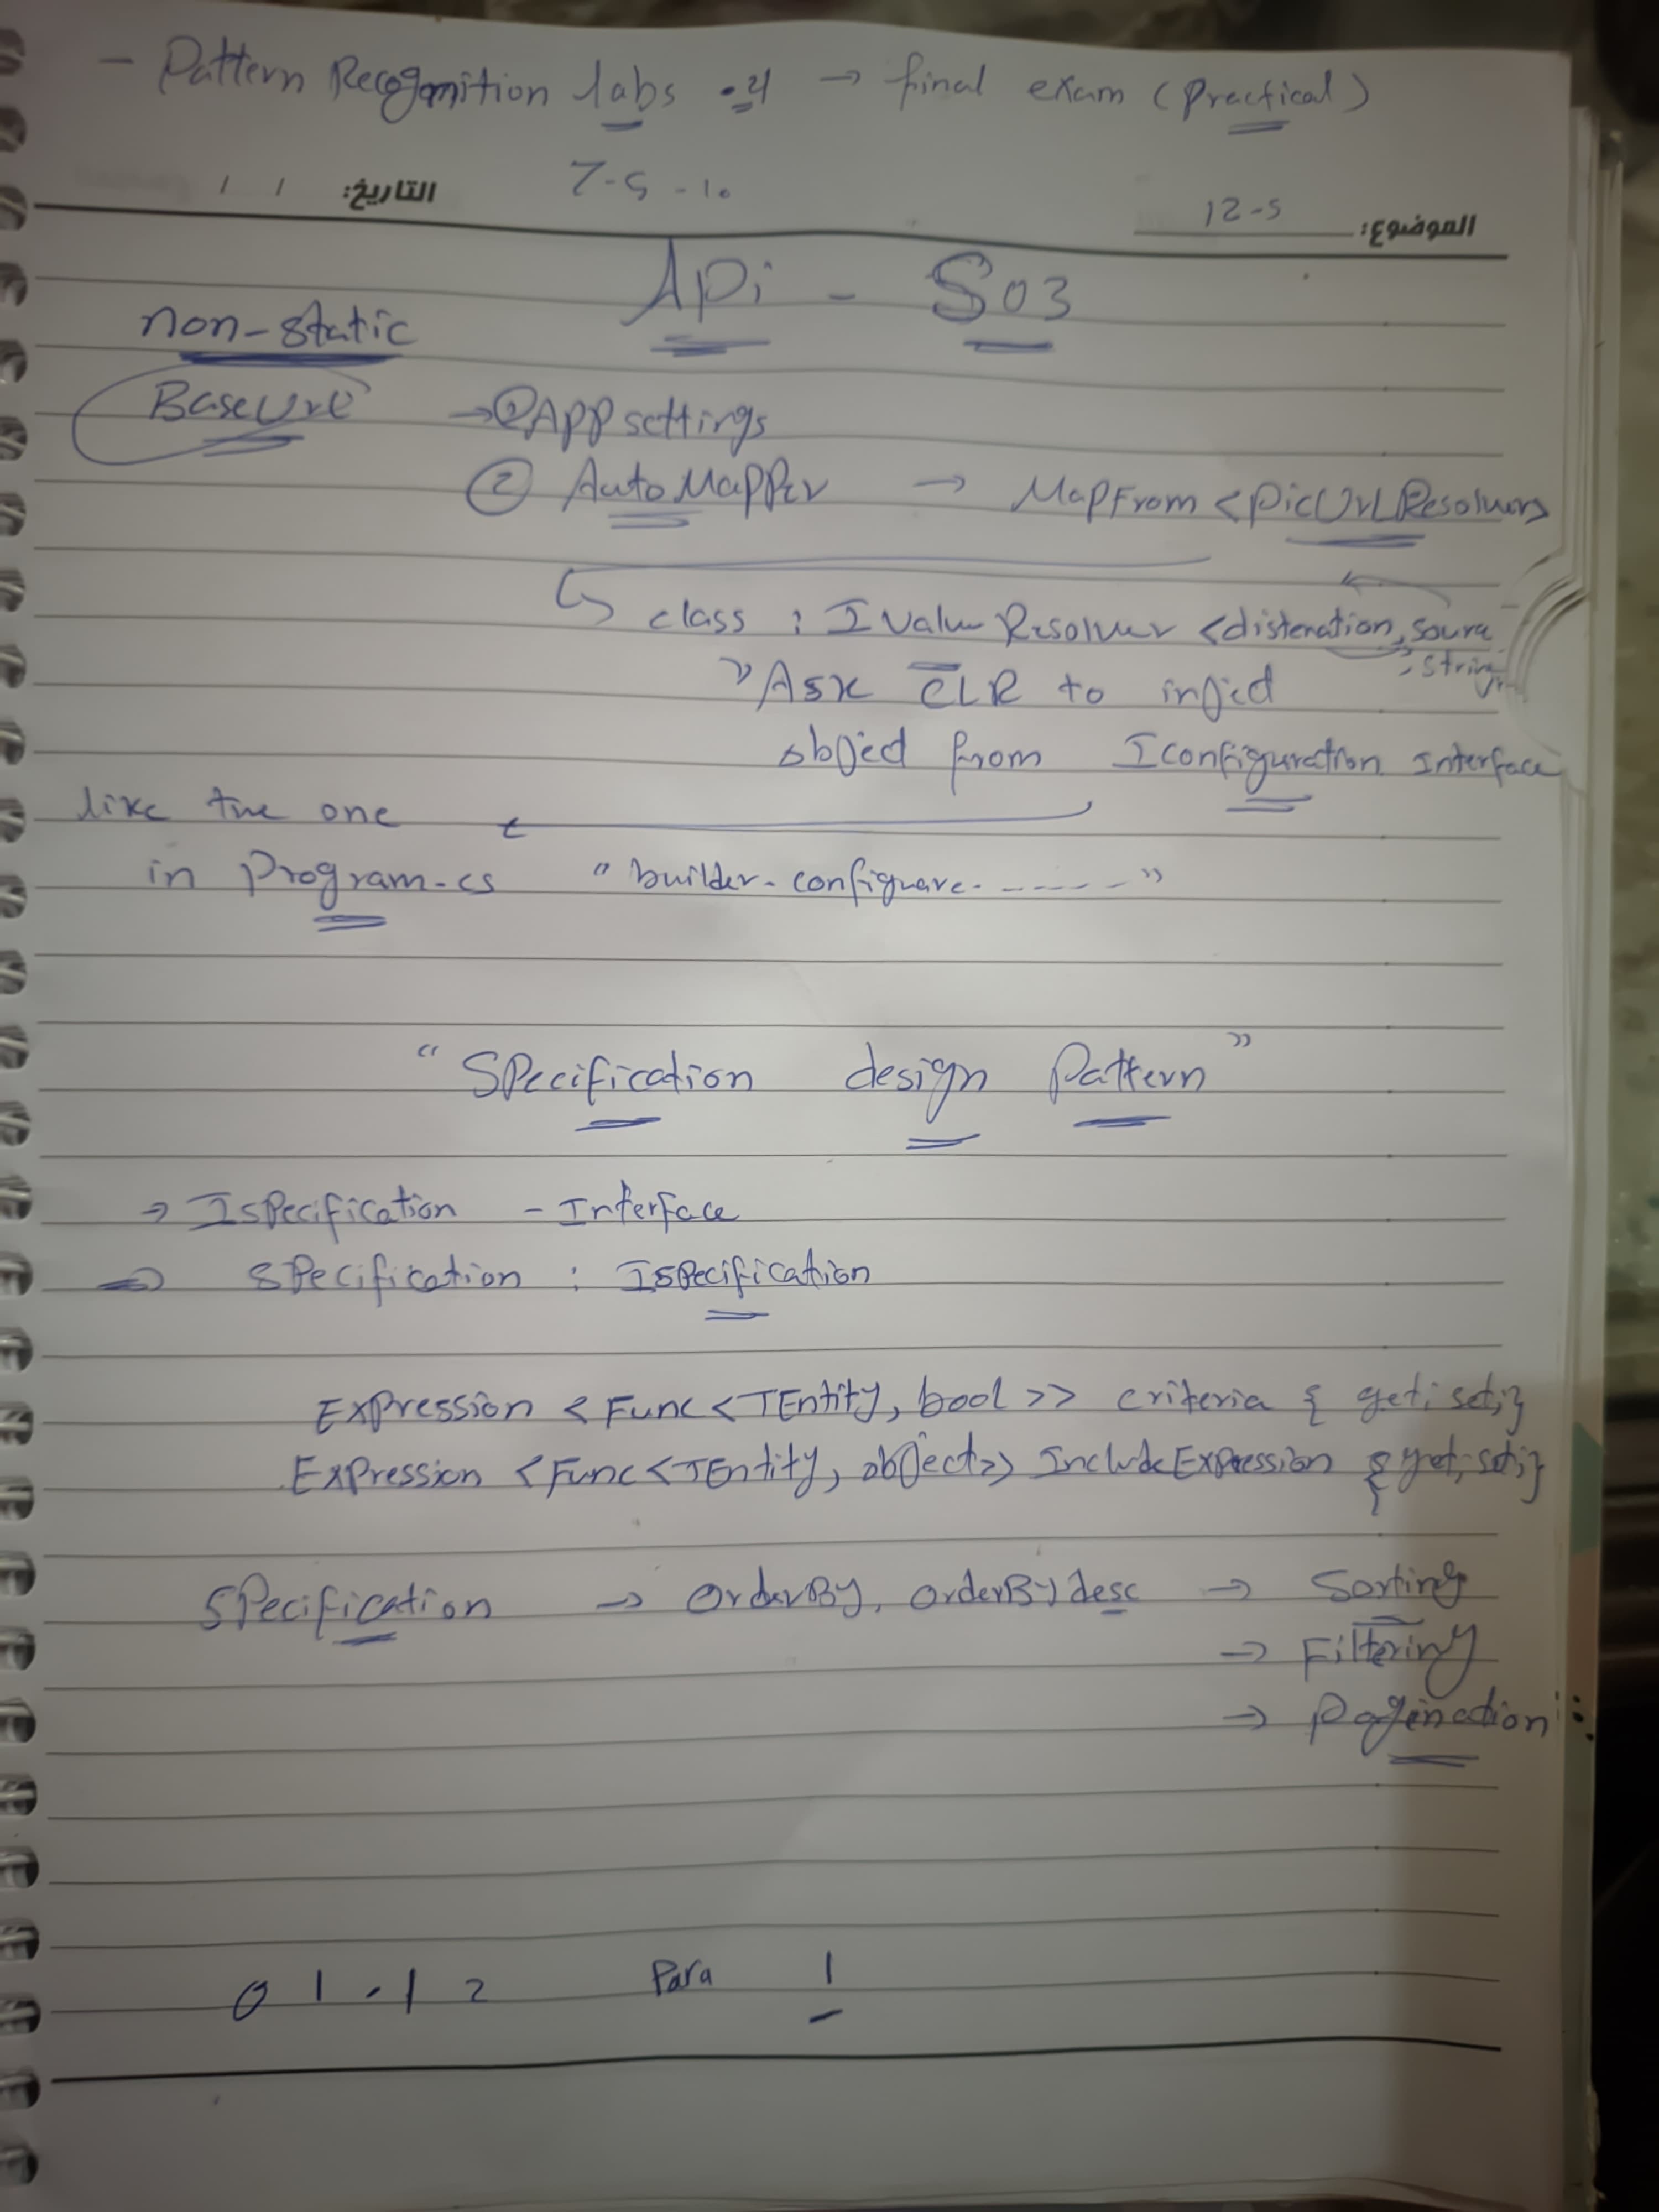 - Pattern Recogmition labs → final exam (Practical)
7-5-10
التاريخ: / /
الموضوع: 12-5
APi - S03
non-static
BaseUrl → ① APPsettings
② AutoMaPPer → MaPFrom <PicUrlResolver>
↳ class : IValueResolver <distenation, source, string
" Ask CLR to inject
object from Iconfiguration Interface
like the one ←
in Program.cs "builder.configuare. ------"
"SPecification design Pattern"
→ ISPecification - Interface
⇒ sPecification : ISPecification
EXPression <Func<TEntity, bool>> criteria { get; set;}
EXPression <Func<TEntity, object>> IncludeExPression { get; set;}
SPecification → OrderBy, OrderBy desc → Sorting
→ Filtering
→ Pagination
01.12 Para 1